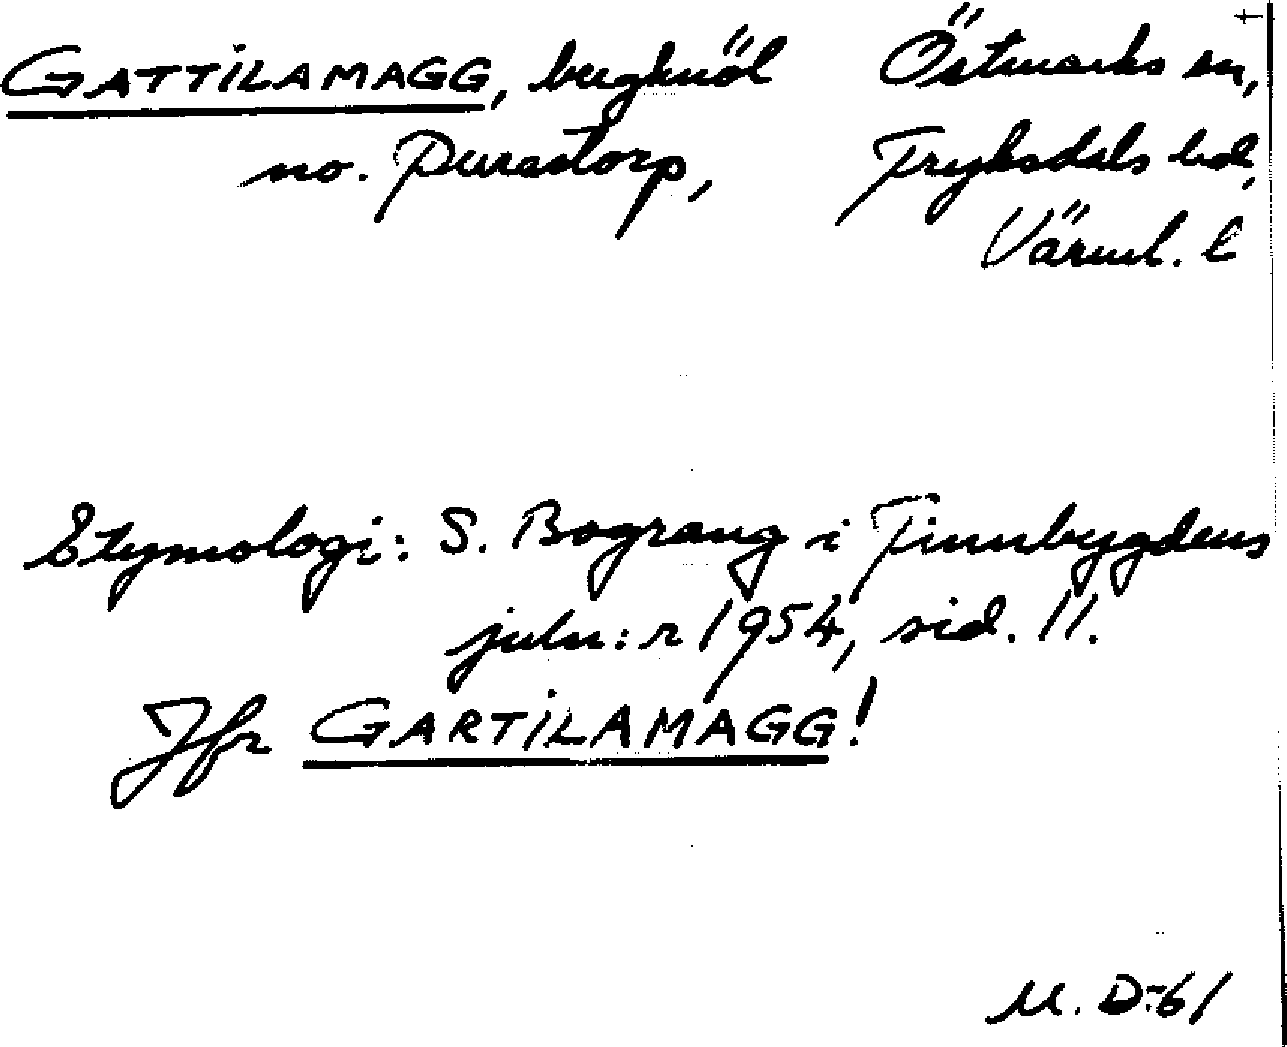 GATTILAMAGG, bergknöl Östmarks sn,
no. Purastorp, Fryksdals hd,
Värml. l
Etymologi: S. Bograng i Finnbygdens
juln:r 1954, sid. 11.
Jfr GARTILAMAGG!
M. D-61